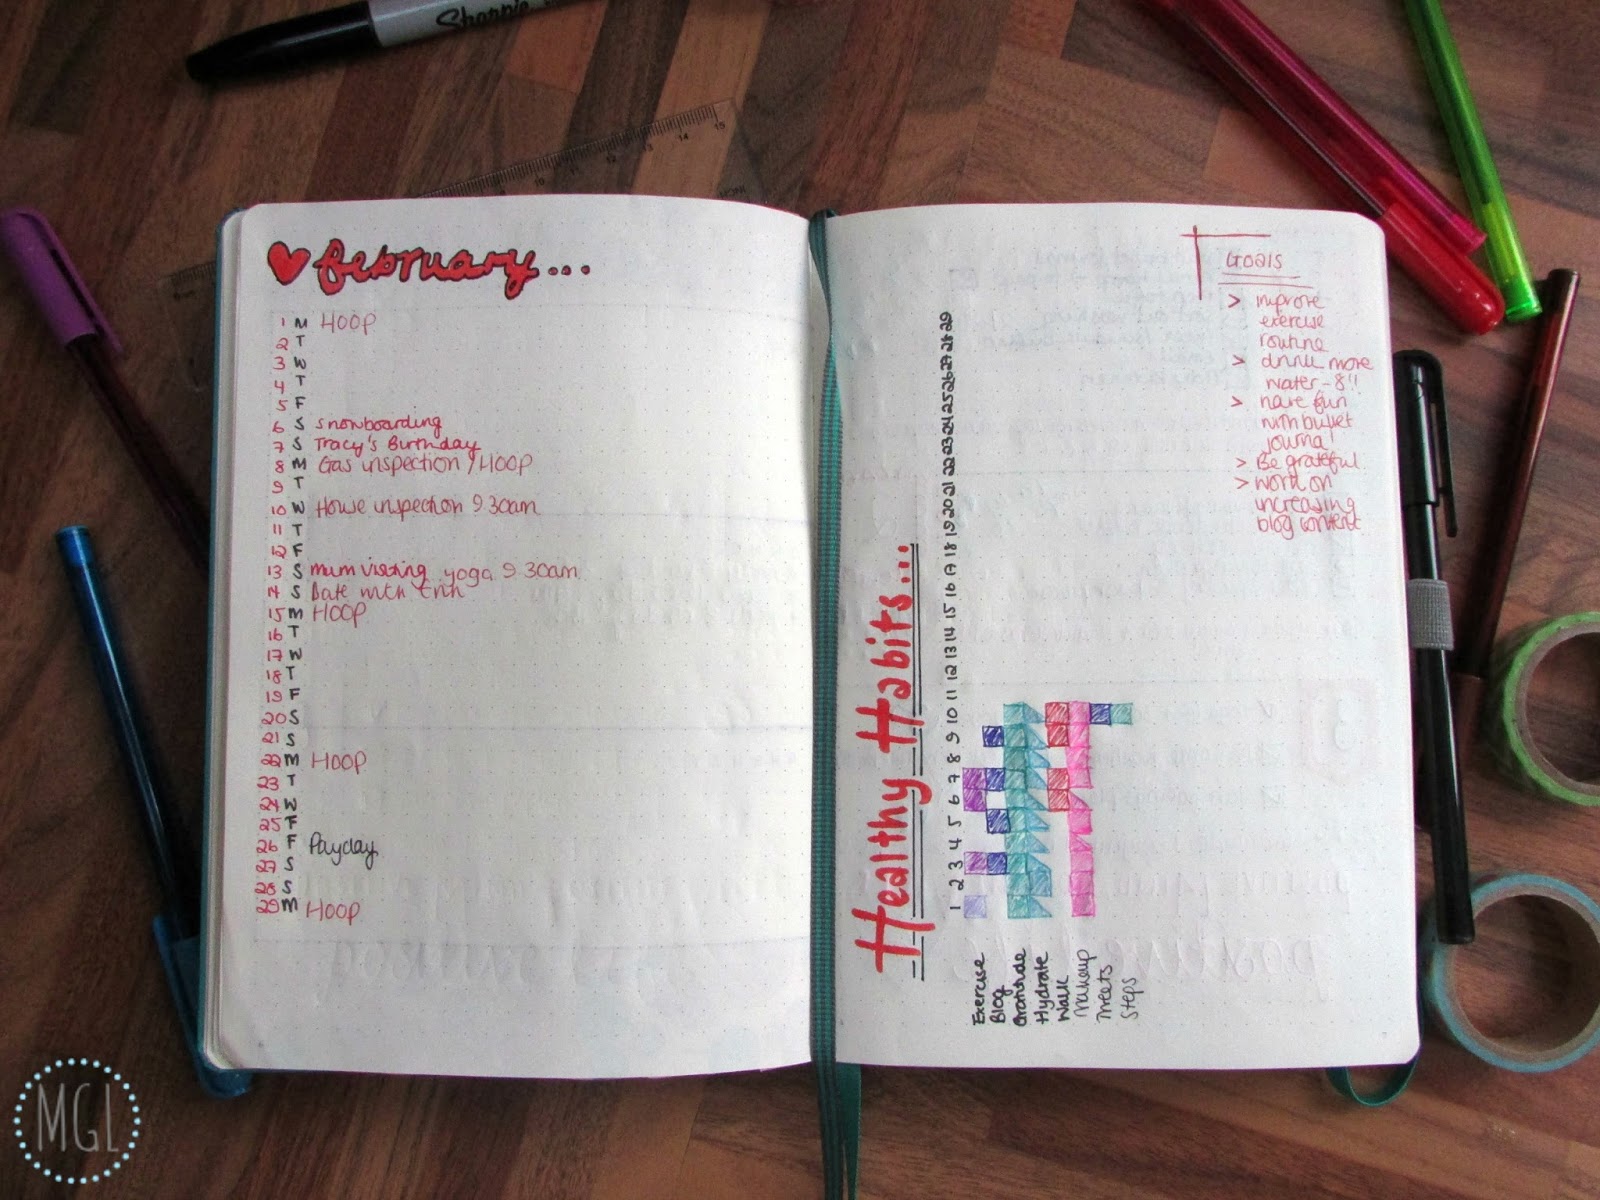 Sharpie
february...
1 M HOOP
2 T
3 W
4 T
5 F
6 S snowboarding
7 S Tracy's Birthday
8 M Gas inspection / HOOP
9 T
10 W House inspection 9 30am
11 T
12 F
13 S mum visiting yoga 9 30am
14 S Date with Erin
15 M HOOP
16 T
17 W
18 T
19 F
20 S
21 S
22 M HOOP
23 T
24 W
25 F
26 F Payday
27 S
28 S
29 M HOOP
Healthy Habits...
1 2 3 4 5 6 7 8 9 10 11 12 13 14 15 16 17 18 19 20 21 22 23 24 25 26 27 28 29
Exercise
Blog
Gratitude
Hydrate
Walk
Makeup
Tweets
Steps
Goals
> improve
exercise
routine
> drink more
water - 8!!
> have fun
with bullet
journal
> Be grateful
> work on
increasing
blog content
MGL